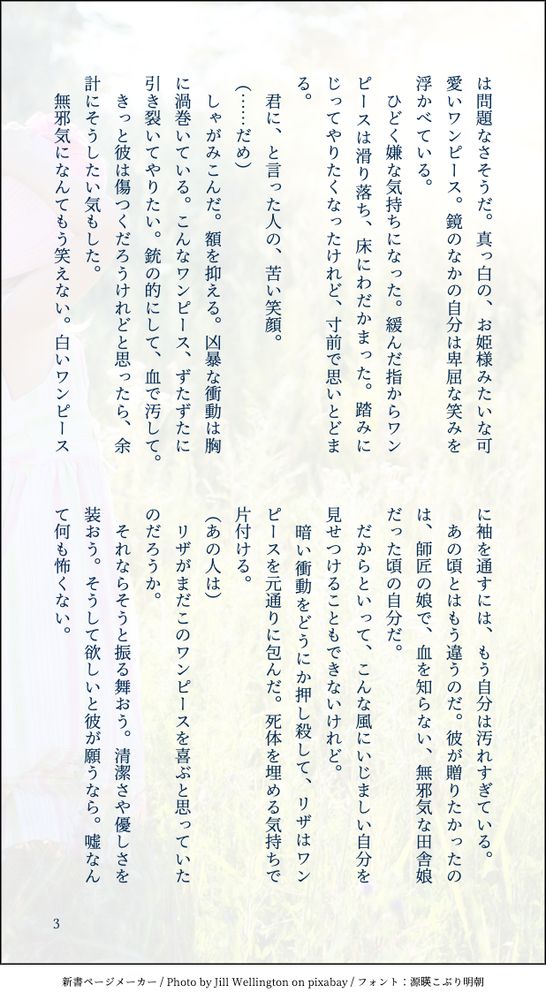 は問題なさそうだ。真っ白の、お姫様みたいな可
愛いワンピース。鏡のなかの自分は卑屈な笑みを
浮かべている。
ひどく嫌な気持ちになった。緩んだ指からワン
ピースは滑り落ち、床にわだかまった。踏みに
じってやりたくなったけれど、寸前で思いとどま
る。
君に、と言った人の、苦い笑顔。
(……だめ)
しゃがみこんだ。額を抑える。凶暴な衝動は胸
に渦巻いている。こんなワンピース、ずたずたに
引き裂いてやりたい。銃の的にして、血で汚して。
きっと彼は傷つくだろうけれどと思ったら、余
計にそうしたい気もした。
無邪気になんてもう笑えない。白いワンピース
に袖を通すには、もう自分は汚れすぎている。
あの頃とはもう違うのだ。彼が贈りたかったの
は、師匠の娘で、血を知らない、無邪気な田舎娘
だった頃の自分だ。
だからといって、こんな風にいじましい自分を
見せつけることもできないけれど。
暗い衝動をどうにか押し殺して、リザはワン
ピースを元通りに包んだ。死体を埋める気持ちで
片付ける。
(あの人は)
リザがまだこのワンピースを喜ぶと思っていた
のだろうか。
それならそうと振る舞おう。清潔さや優しさを
装おう。そうして欲しいと彼が願うなら。嘘なん
て何も怖くない。
3
新書ページメーカー / Photo by Jill Wellington on pixabay / フォント：源暎こぶり明朝